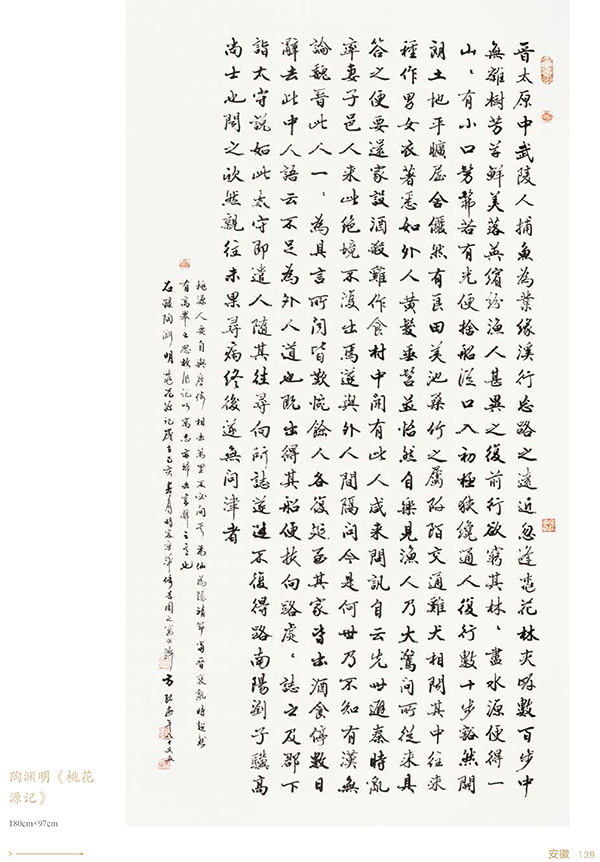 晉太原中武陵人捕魚為業緣溪行忘路之遠近忽逢桃花林夾岸數百步中
無雜樹芳草鮮美落英繽紛漁人甚異之復前行欲窮其林〻盡水源便得一
山〻有小口髣髴若有光便捨船從口入初極狹纔通人復行數十步豁然開
朗土地平曠屋舍儼然有良田美池桑竹之屬阡陌交通雞犬相聞其中往來
種作男女衣著悉如外人黃髮垂髫並怡然自樂見漁人乃大驚問所從來具
答之便要還家設酒殺雞作食村中聞有此人咸來問訊自云先世避秦時亂
率妻子邑人來此絕境不復出焉遂與外人間隔問今是何世乃不知有漢無
論魏晉此人一〻為具言所聞皆歎惋餘人各復延至其家皆出酒食停數日
辭去此中人語云不足為外人道也既出得其船便扶向路處〻誌之及郡下
詣太守說如此太守即遣人隨其往尋向所誌遂迷不復得路南陽劉子驥高
尚士也聞之欣然親往未果尋病終後遂無問津者
桃源人要自與塵俗相去萬里不必問其為仙為隱靖節當晉衰亂時超然
有高舉之思故作記以寓志亦歸去來辭之意也
右錄陶淵明桃花源記歲在己亥春月時客京華
陶渊明《桃花
源记》
180cm×97cm
安徽 139